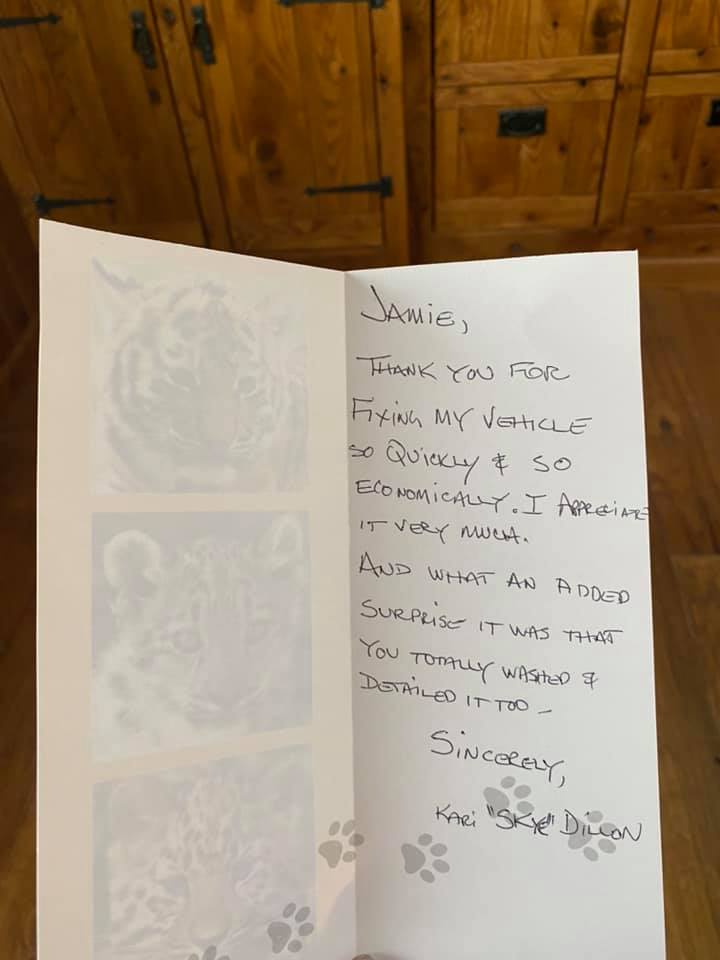 JAMIE,
THANK YOU FOR
FIXING MY VEHICLE
SO QUICKLY & SO
ECONOMICALLY. I APPRECIATE
IT VERY MUCH.
AND WHAT AN ADDED
SURPRISE IT WAS THAT
YOU TOTALLY WASHED &
DETAILED IT TOO –
SINCERELY,
KARI "SKYE" DILLON